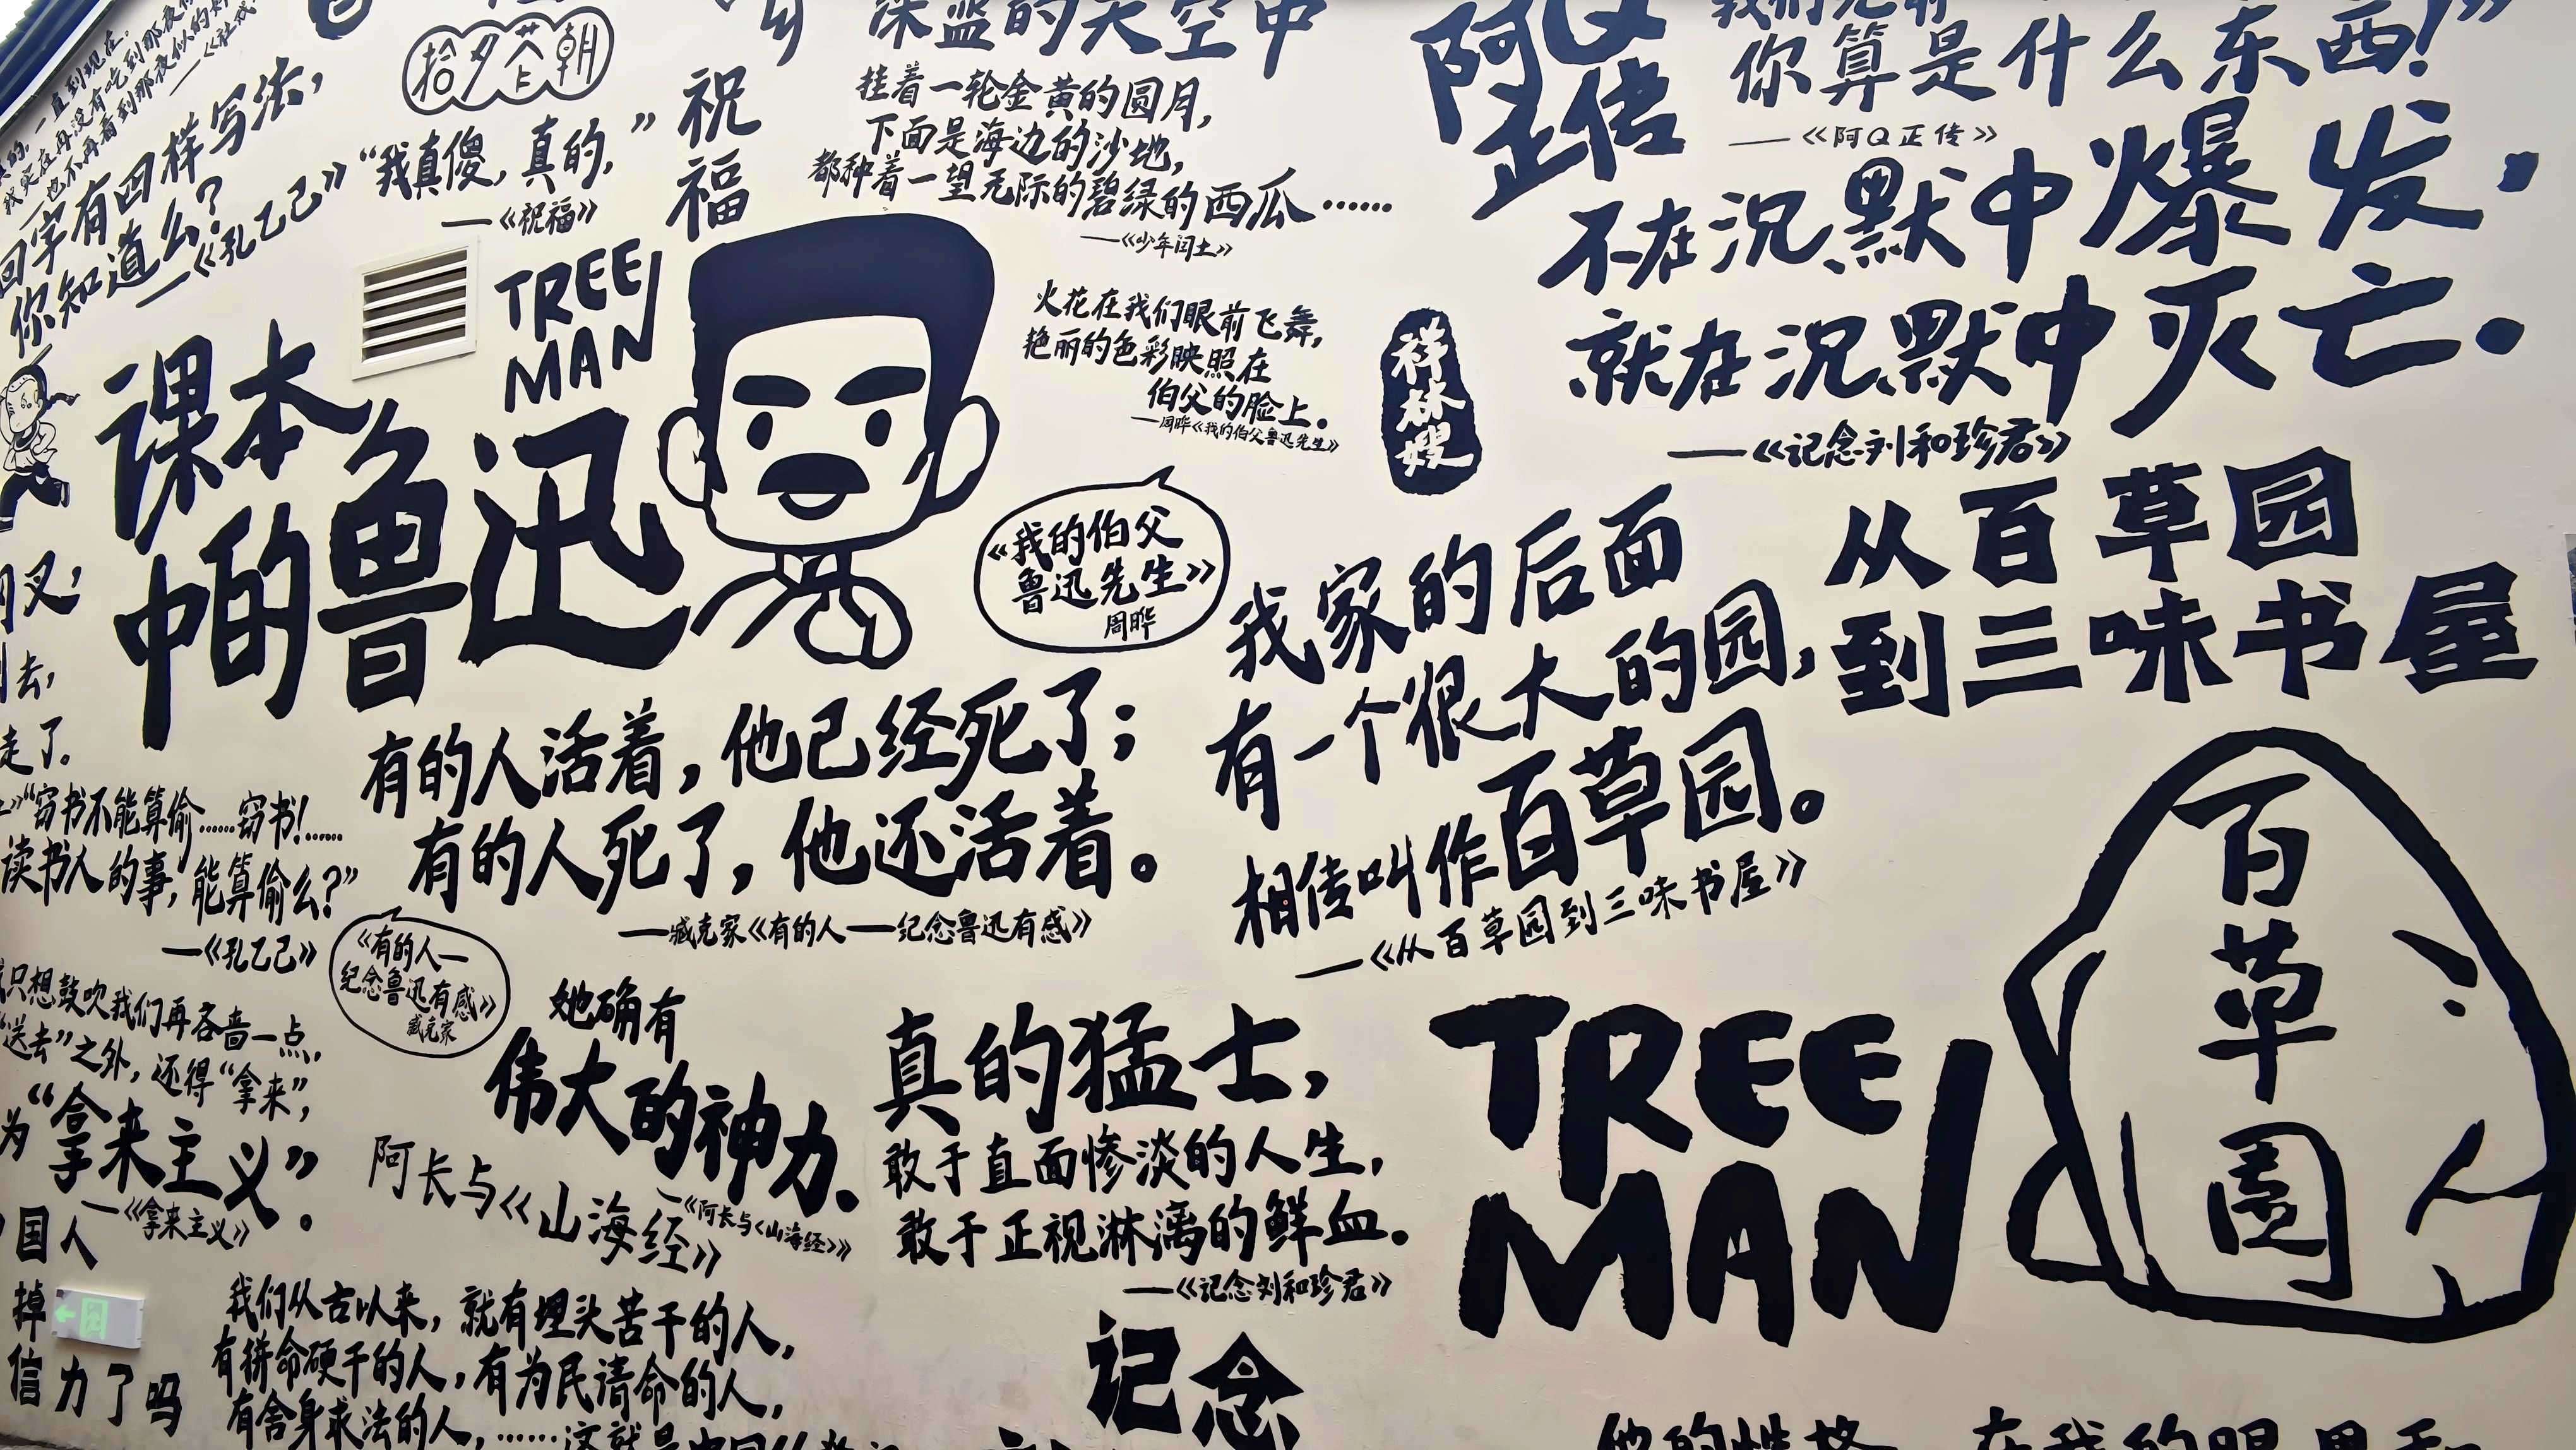 一直到现在,
我实在再没有吃到那夜似的好
也不再看到那夜似的好
——《社戏
回字有四样写法,
你知道么?
——《孔乙己》”
拾夕花朝
“我真傻,真的,”
——《祝福》
祝福
深蓝的天空中
挂着一轮金黄的圆月,
下面是海边的沙地,
都种着一望无际的碧绿的西瓜……
——《少年闰土》
阿Q
正传
你算是什么东西!”
——《阿Q正传》
不在沉默中爆发,
就在沉默中灭亡.
——《记念刘和珍君》
TREE
MAN
课本
中的
鲁迅
火花在我们眼前飞舞,
艳丽的色彩映照在
伯父的脸上。
——周晔《我的伯父鲁迅先生》
祥林嫂
《我的伯父
鲁迅先生》
周晔
我家的后面
有一个很大的园,
相传叫作百草园。
——《从百草园到三味书屋》
从百草园
到三味书屋
叉,
去,
走了。
“窃书不能算偷……窃书!……
读书人的事,能算偷么?”
——《孔乙己》
有的人活着,他已经死了;
有的人死了,他还活着。
——臧克家《有的人——纪念鲁迅有感》
《有的人—
纪念鲁迅有感》
臧克家
只想鼓吹我们再吝啬一点,
“送去”之外,还得“拿来”,
为“拿来主义”.
——《拿来主义》
她确有
伟大的神力.
—《阿长与《山海经》》
阿长与《山海经》
真的猛士,
敢于直面惨淡的人生,
敢于正视淋漓的鲜血。
——《记念刘和珍君》
TREE
MAN
百草園
国人
掉
信力了吗
我们从古以来,就有埋头苦干的人,
有拼命硬干的人,有为民请命的人,
有舍身求法的人,……这就是中国的
记念
他的性格
在我的眼里